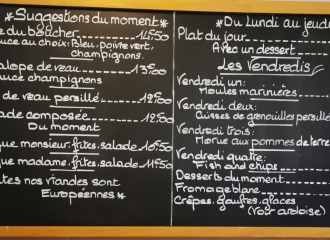 *Suggestions du moment*
du boucher 14.50
au choix: Bleu, poivre vert,
champignons.
alope de veau 13.00
uce champignons
de veau persillé 12.00
ade composée 12.00
Du moment
que monsieur, frites, salade 10.50
que madame, frites, salade 11.50
tes nos viandes sont
Européennes *
*Du Lundi au jeudi
Plat du jour
Avec un dessert
Les Vendredis
Vendredi un:
Moules marinières
Vendredi deux:
Cuisses de grenouilles persillé
Vendredi trois:
Morue aux pommes de terre
Vendredi quatre:
Fish and chips
Desserts du moment
Fromage blanc
Crêpes, gaufres, glaces
(Voir ardoise)